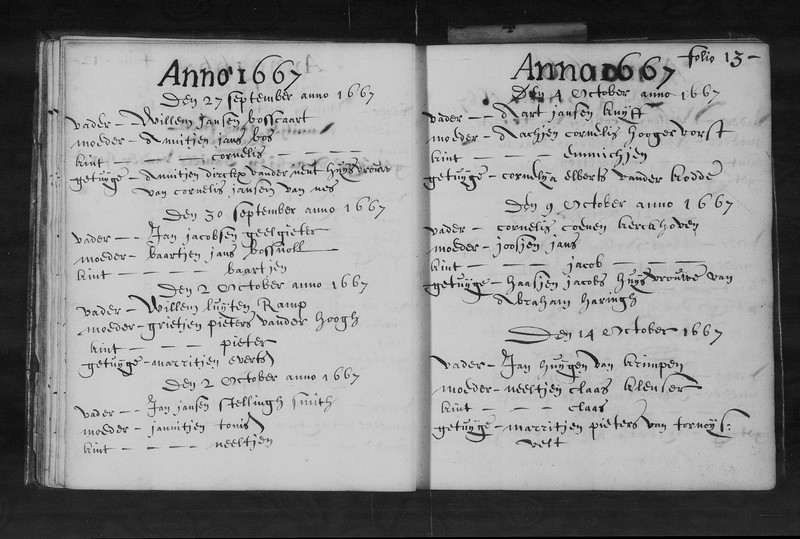 Anno 1667
Den 27 september anno 1667
vader — Willem jansen bosscaart
moeder — annitjen jans bos
kint — — — cornelis — — —
getuÿge — annitjen dirckx vander neut huÿsvrouw
van cornelis jansen van nes
Den 30 september anno 1667
vader — — Jan jacobsen geelgieter
moeder — baartjen jans bossnoll
kint — — — baartjen
Den 2 October anno 1667
vader — Willem luÿten Ramp
moeder — grietjen pieters vander hoogh
kint — — — pieter
getuÿge — marritjen everts
Den 2 October anno 1667
vader — — Jan jansen stellingh smith
moeder — jannitjen tonis
kint — — — neeltjen
folio 13 —
Anno 1667
Den 4 October anno 1667
vader — — Aart jansen knÿff
moeder — Aachjen cornelis hoogervorst
kint — — — emmichjen
getuÿge — cornelya elberts vander kodde
Den 9 October anno 1667
vader — cornelis coenen kerckhoven
moeder — joosjen jans
kint — — — jacob — — —
getuÿge — haasjen jacobs huÿsvrouwe van
Abraham Haringh
Den 14 October 1667
vader — Jan huÿgen van krimpen
moeder — neeltjen claas klenser
kint — — — claas
getuÿge — marritjen pieters van tornoÿs:
velt